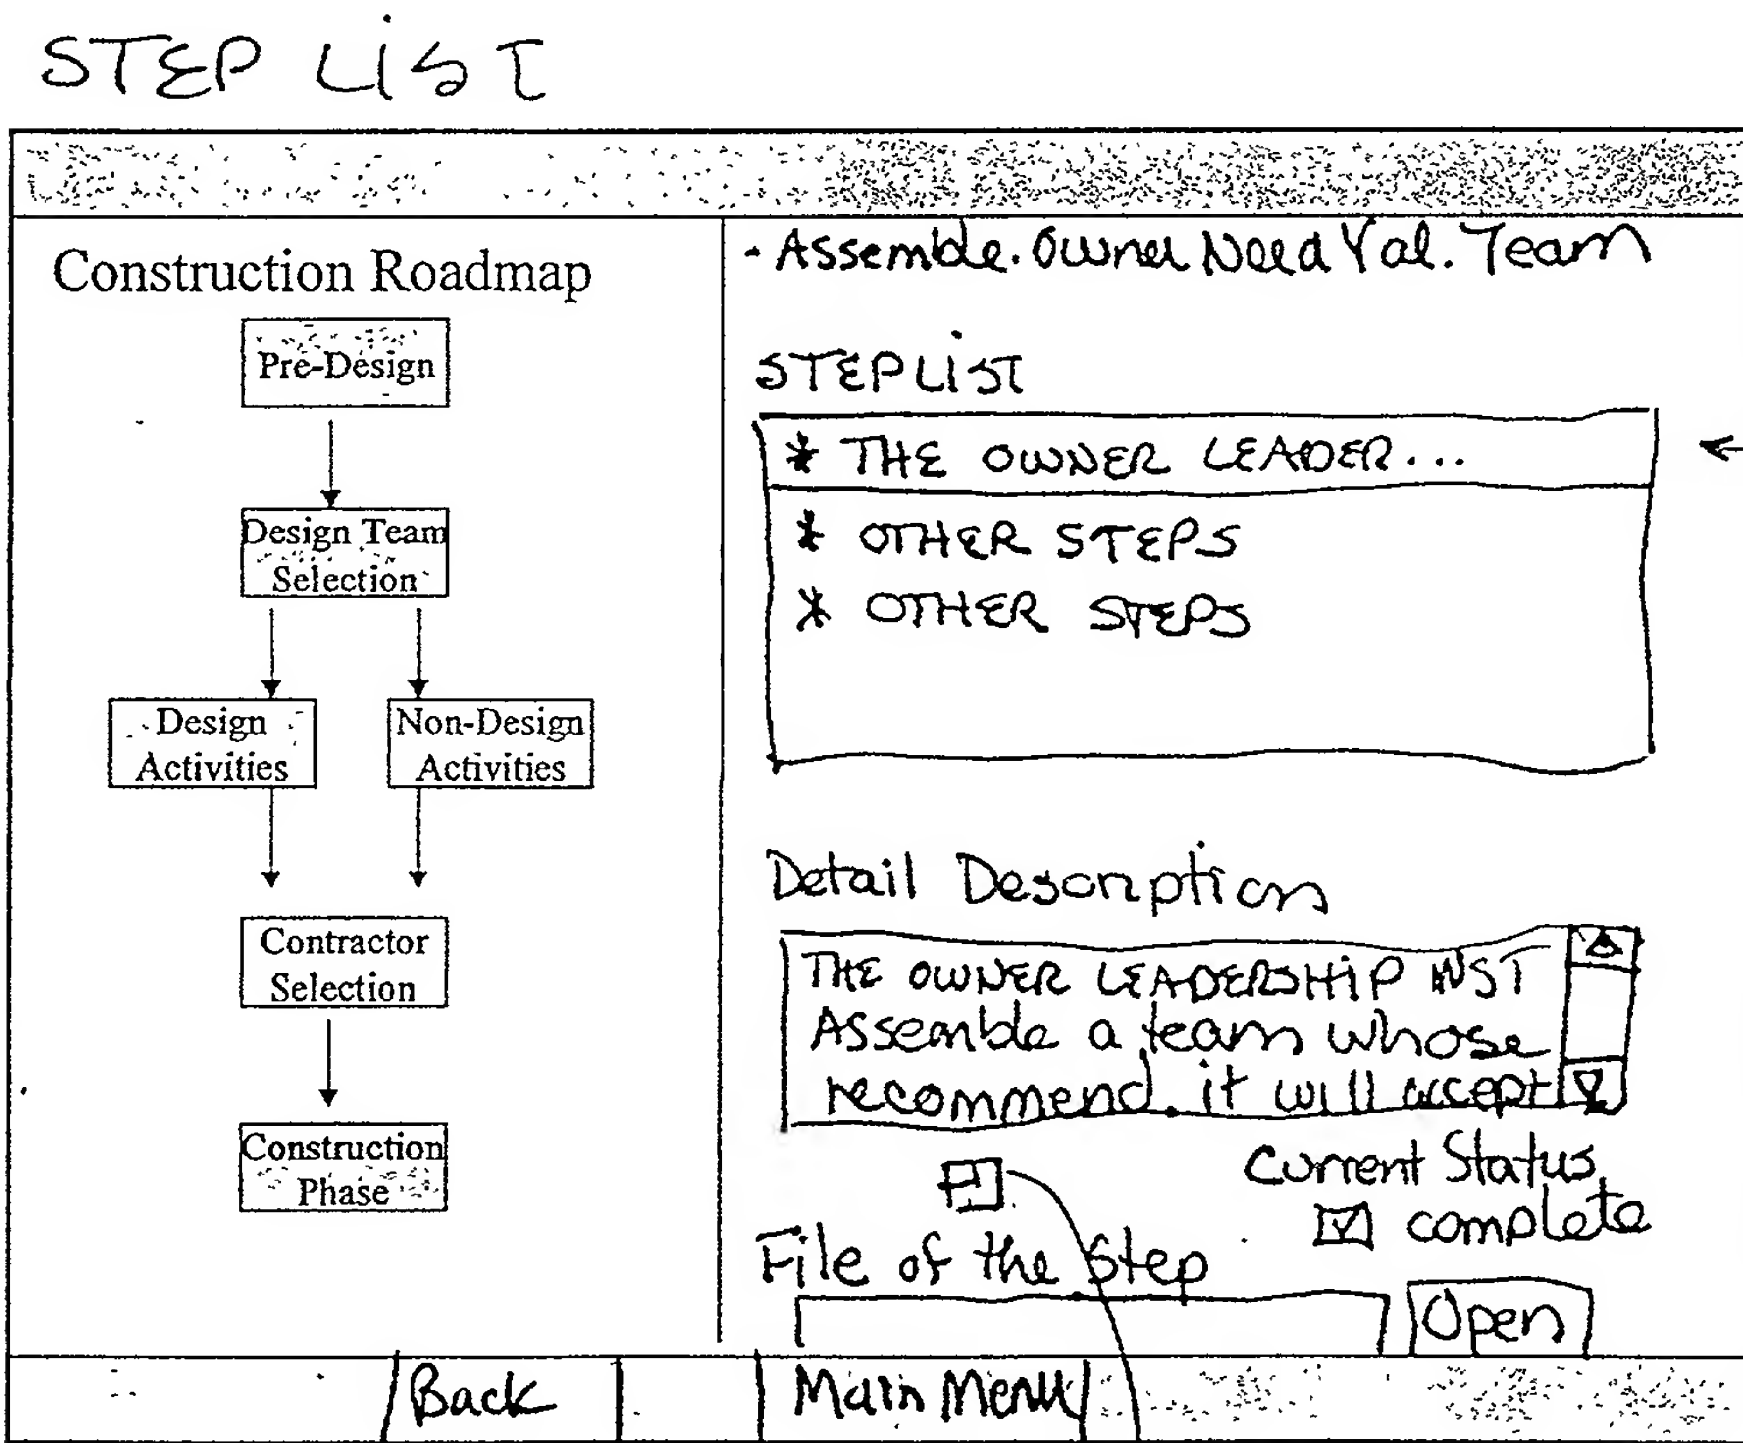 STEP LIST
Construction Roadmap
Pre-Design
Design Team
Selection
Design
Activities
Non-Design
Activities
Contractor
Selection
Construction
Phase
- Assemble. Owner Need Val. Team
STEP LIST
* THE OWNER LEADER...
* OTHER STEPS
* OTHER STEPS
Detail Description
THE OWNER LEADERSHIP
Assemble a team whose
recommend. it will accept
Current Status
complete
File of the step
Open
Back
Main Menu